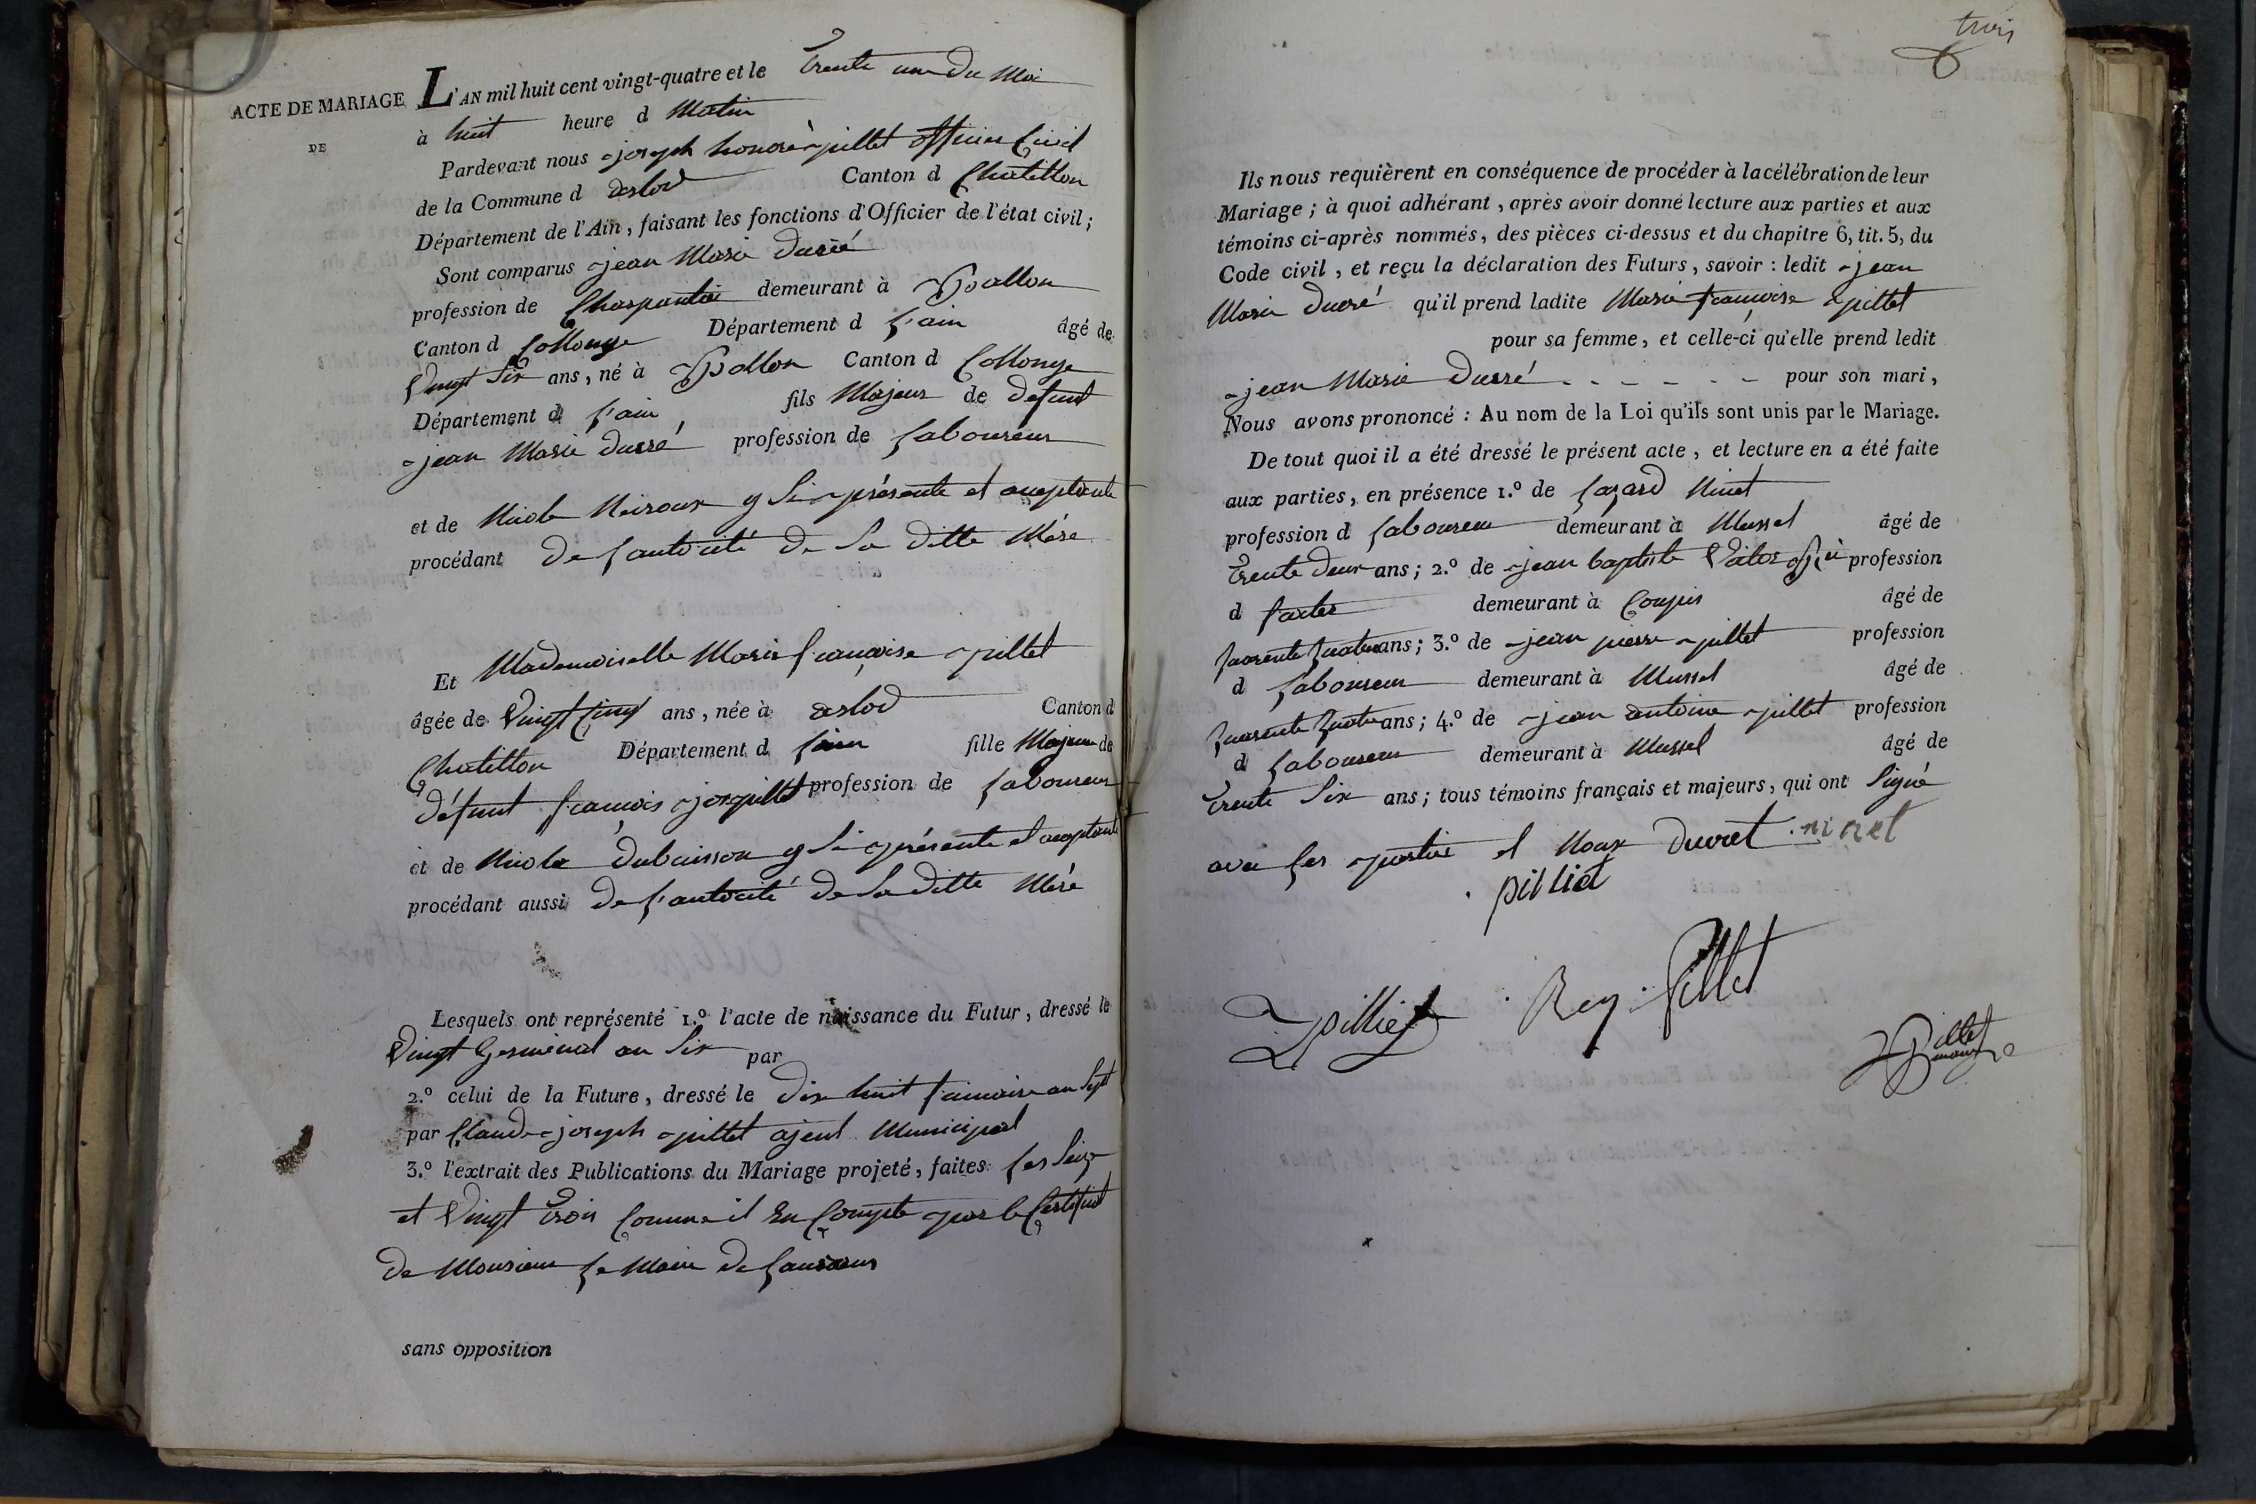 ACTE DE MARIAGE
DE
L'AN mil huit cent vingt-quatre et le trente un du Mai
à huit heure d Matin
Pardevant nous joseph honoré pillet officier Civil
de la Commune d arlod Canton d Chatillon
Département de l'Ain, faisant les fonctions d'Officier de l'état civil;
Sont comparus jean Marie Ducré
profession de Charpentié demeurant à Ballon
Canton d Collonge Département d l'ain âgé de
Vingt Six ans, né à Ballon Canton d Collonge
Département d l'ain fils Majeur de defunt
jean Marie Ducré profession de Laboureur
et de Nicole y Si présente et aceptante
procédant De Lautorité De La ditte Mére
Et Mademoiselle Marie francoise pillet
âgée de Vingt Cinq ans, née à arlod Canton d
Chatillon Département d l'ain fille Majeure de
défunt francois jos pillet profession de Laboureur
et de Nicole Dubuisson y Si présente et aceptante
procédant aussi De L'autorité De La ditte Mére
Lesquels ont représenté 1.º l'acte de naissance du Futur, dressé le
Vingt Germinal an Six par
2.º celui de la Future, dressé le Dix huit frimaire an Sept
par Claude joseph pillet ajent Municipal
3.º l'extrait des Publications du Mariage projeté, faites Les Seize
et Vingt trois Comme il En Compte par le Certificat
de Monsieur Le Maire de Lancrans
sans opposition
trois
Ils nous requièrent en conséquence de procéder à la célébration de leur
Mariage; à quoi adhérant, après avoir donné lecture aux parties et aux
témoins ci-après nommés, des pièces ci-dessus et du chapitre 6, tit. 5, du
Code civil, et reçu la déclaration des Futurs, savoir: ledit jean
Marie Ducré qu'il prend ladite Marie francoise pillet
pour sa femme, et celle-ci qu'elle prend ledit
jean Marie Ducré pour son mari,
Nous avons prononcé: Au nom de la Loi qu'ils sont unis par le Mariage.
De tout quoi il a été dressé le présent acte, et lecture en a été faite
aux parties, en présence 1.º de Lazard Ninet
profession d Laboureur demeurant à Mussel âgé de
trente deux ans; 2.º de jean baptiste profession
d demeurant à Coupis âgé de
quarente quatre ans; 3.º de jean pierre pillet profession
d Laboureur demeurant à Mussel âgé de
quarente quatre ans; 4.º de jean antoine pillet profession
d Laboureur demeurant à Mussel âgé de
trente Six ans; tous témoins français et majeurs, qui ont Signé
avec Les partie et Nous Ducret ninet
pilliet
pilliet Rey pillet
pillet